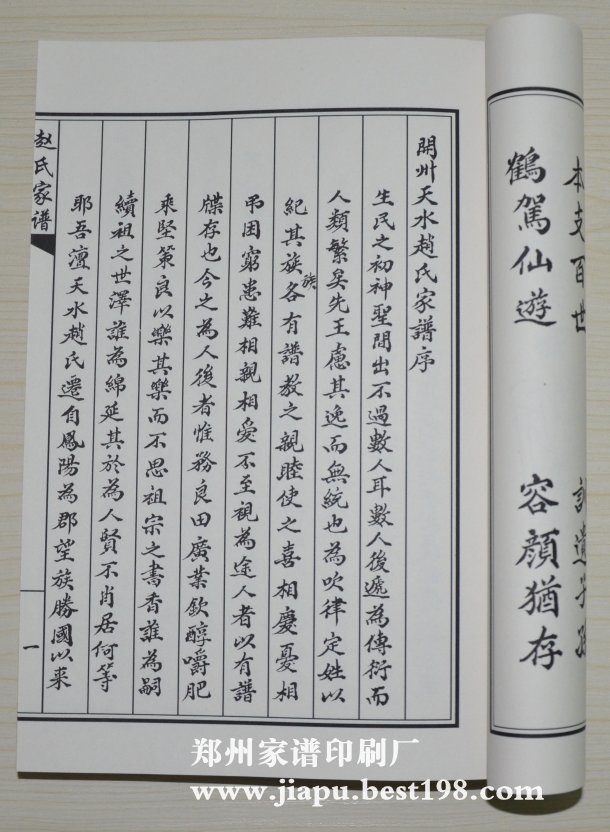 本支百世
鶴駕仙遊
容顏猶存
開州天水趙氏家譜序
生民之初神聖間出不過數人耳數人後遞為傳衍而
人類繁矣先王慮其逸而無統也為吹律定姓以
紀其族族各有譜教之親睦使之喜相慶憂相
弔困窮患難相親相愛不至視為途人者以有譜
牒存也今之為人後者惟務良田廣業飲醇嚼肥
乘堅策良以樂其樂而不思祖宗之書香誰為嗣
續祖之世澤誰為綿延其於為人賢不肖居何等
耶吾澶天水趙氏遷自鳳陽為郡望族勝國以來
赵氏家譜
一
郑州家谱印刷厂
www.jiapu.best198.com